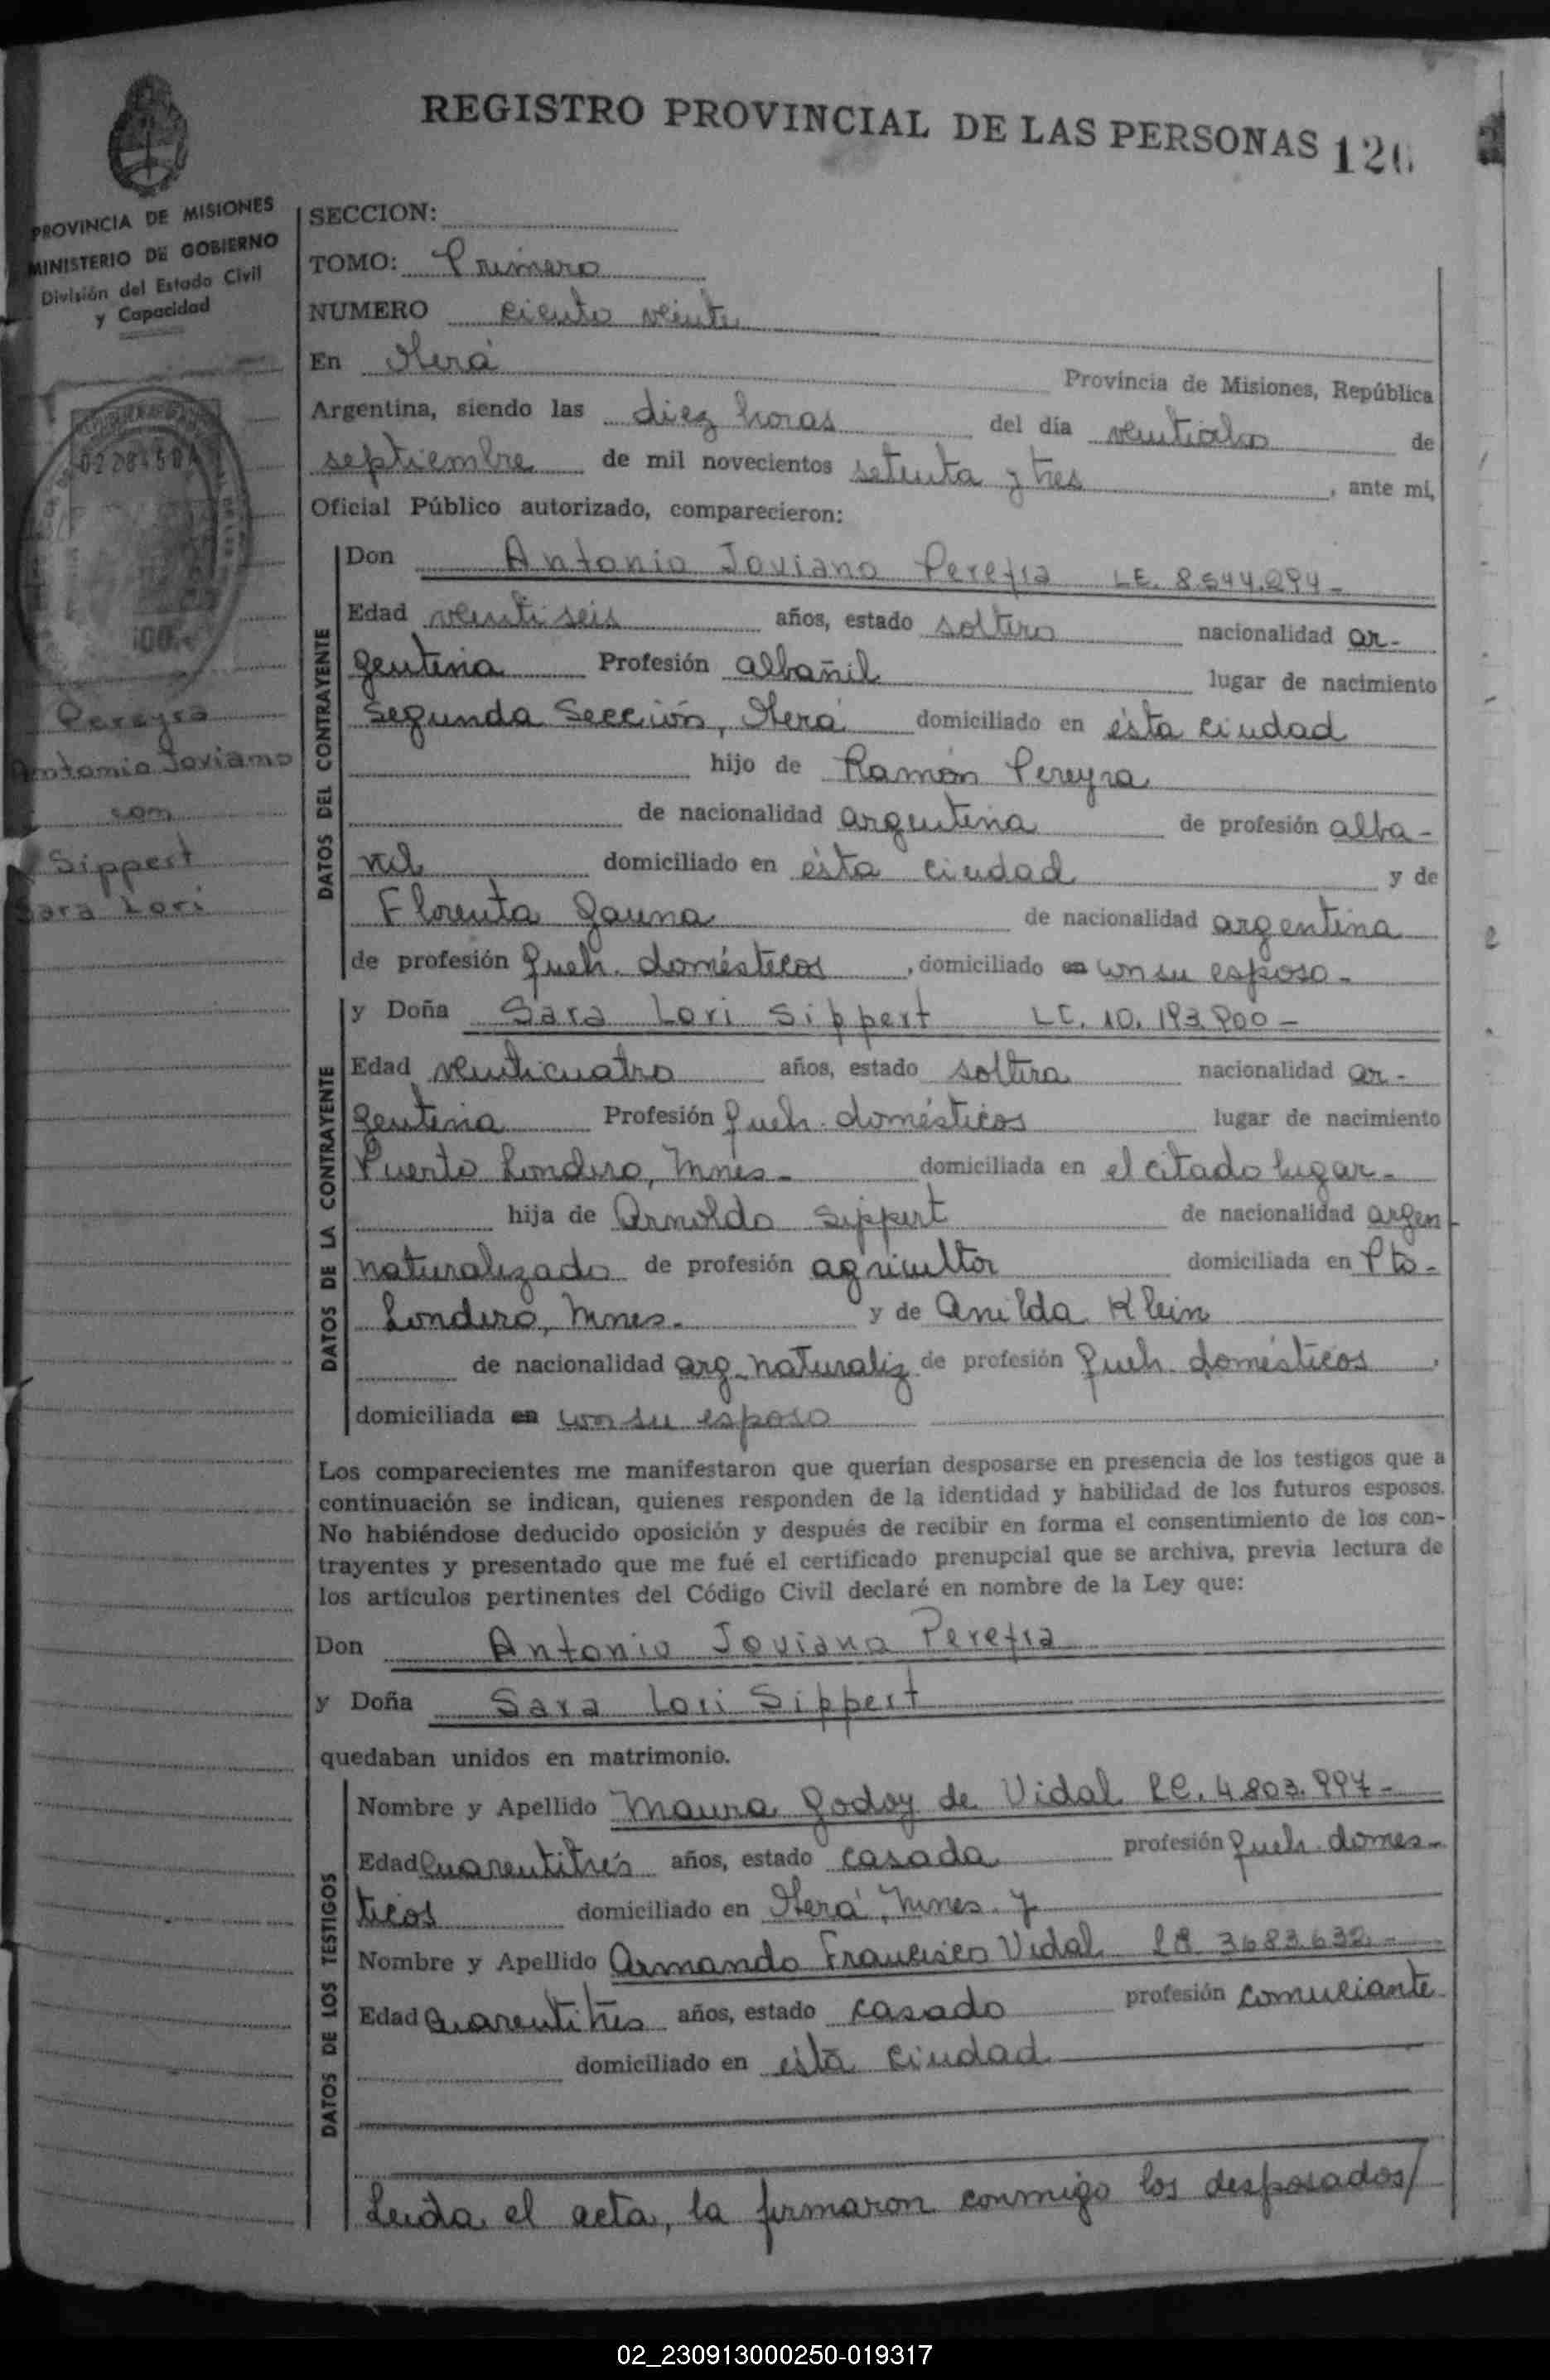 REGISTRO PROVINCIAL DE LAS PERSONAS 126
PROVINCIA DE MISIONES
MINISTERIO DE GOBIERNO
División del Estado Civil
y Capacidad
Pereyra
Antonio Joviano
con
Sippert
Sara Lori
SECCION:
TOMO: Primero
NUMERO ciento veinte
En Oberá Provincia de Misiones, República
Argentina, siendo las diez horas del día de
septiembre de mil novecientos setenta y tres, ante mí,
Oficial Público autorizado, comparecieron:
DATOS DEL CONTRAYENTE
Don Antonio Joviano Pereyra LE. 8.544.294-
Edad veintiseis años, estado soltero nacionalidad ar-
gentina Profesión albañil lugar de nacimiento
Segunda Sección, Oberá domiciliado en ésta ciudad
hijo de Ramón Pereyra
de nacionalidad argentina de profesión alba-
ñil domiciliado en ésta ciudad y de
Gauna de nacionalidad argentina
de profesión queh. domésticos, domiciliado en con su esposo-
DATOS DE LA CONTRAYENTE
y Doña Sara Lori Sippert LC. 10.193.900-
Edad veinticuatro años, estado soltera nacionalidad ar-
gentina Profesión queh. domésticos lugar de nacimiento
Puerto Londero, Mnes- domiciliada en el citado lugar-
hija de Arnoldo Sippert de nacionalidad argen
naturalizado de profesión agricultor domiciliada en Pto-
Londero, Mnes. y de Anilda Klein
de nacionalidad arg-naturaliz de profesión queh. domésticos,
domiciliada en con su esposo
Los comparecientes me manifestaron que querían desposarse en presencia de los testigos que a
continuación se indican, quienes responden de la identidad y habilidad de los futuros esposos.
No habiéndose deducido oposición y después de recibir en forma el consentimiento de los con-
trayentes y presentado que me fué el certificado prenupcial que se archiva, previa lectura de
los artículos pertinentes del Código Civil declaré en nombre de la Ley que:
Don Antonio Joviano Pereyra
y Doña Sara Lori Sippert
quedaban unidos en matrimonio.
DATOS DE LOS TESTIGOS
Nombre y Apellido Maura Godoy de Vidal LC. 4.803.997-
Edad Cuarentitrés años, estado casada profesión queh. domes-
ticos domiciliado en Oberá, Mnes. y
Nombre y Apellido Armando Francisco Vidal 3683.632.-
Edad Cuarentitrés años, estado casado profesión comerciante
domiciliado en ésta ciudad
Leida el acta, la firmaron conmigo los desposados/
02_230913000250-019317